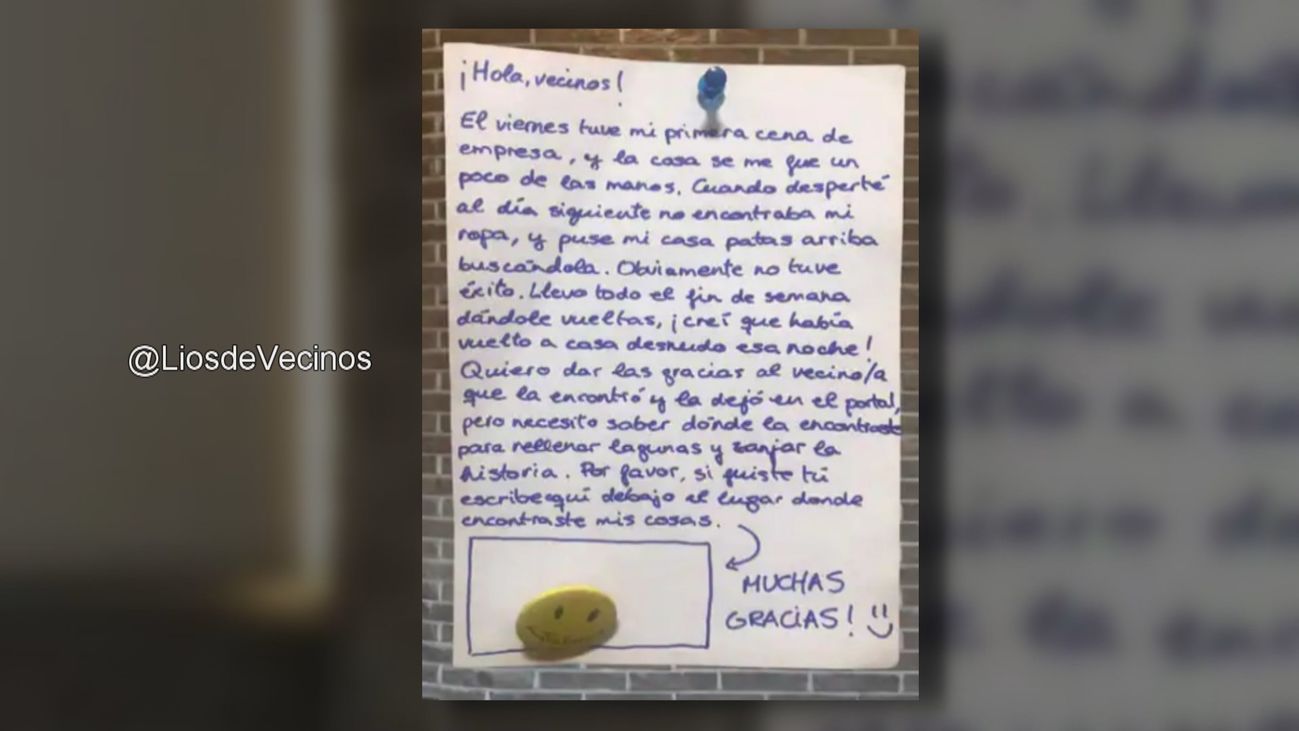 @LiosdeVecinos
¡Hola, vecinos!
El viernes tuve mi primera cena de
empresa, y la cosa se me fue un
poco de las manos. Cuando desperté
al día siguiente no encontraba mi
ropa, y puse mi casa patas arriba
buscándola. Obviamente no tuve
éxito. Llevo todo el fin de semana
dándole vueltas, ¡creí que había
vuelto a casa desnudo esa noche!
Quiero dar las gracias al vecino/a
que la encontró y la dejó en el portal,
pero necesito saber dónde la encontraste
para rellenar lagunas y zanjar la
historia. Por favor, si fuiste tú
escribe aquí debajo el lugar donde
encontraste mis cosas.
MUCHAS
GRACIAS!